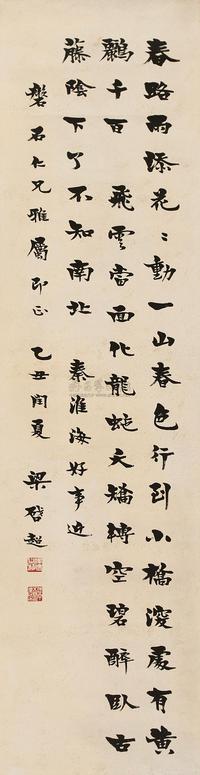 春路雨添花〻動一山春色行到小橋深處有黃
鸝千百 飛雲當面化龍蛇夭矯轉空碧醉臥古
藤陰下了不知南北 秦淮海好事近
磐石仁兄雅屬即正 乙丑閏夏 梁啓超